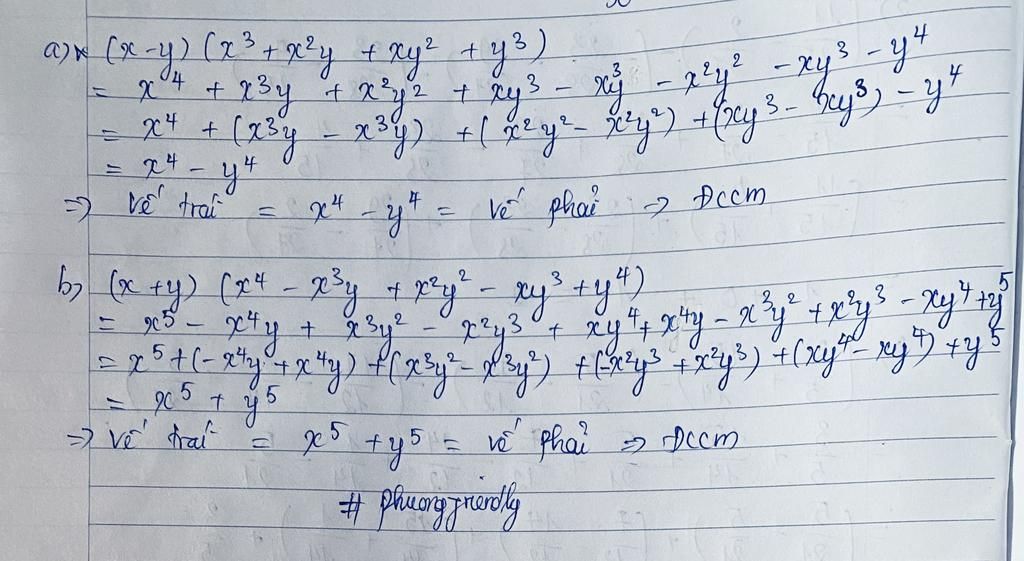 a) (x - y) (x³ + x²y + xy² + y³)
= x⁴ + x³y + x²y² + xy³ - xy³ - x²y² - xy³ - y⁴
= x⁴ + (x³y - x³y) + (x²y² - x²y²) + (xy³ - xy³) - y⁴
= x⁴ - y⁴
=> Vế trái = x⁴ - y⁴ = vế phải => ĐCCM
b) (x + y) (x⁴ - x³y + x²y² - xy³ + y⁴)
= x⁵ - x⁴y + x³y² - x²y³ + xy⁴ + x⁴y - x³y² + x²y³ - xy⁴ + y⁵
= x⁵ + (- x⁴y + x⁴y) + (x³y² - x³y²) + (-x²y³ + x²y³) + (xy⁴ - xy⁴) + y⁵
= x⁵ + y⁵
=> Vế trái = x⁵ + y⁵ = vế phải => ĐCCM
# phuongfriendly